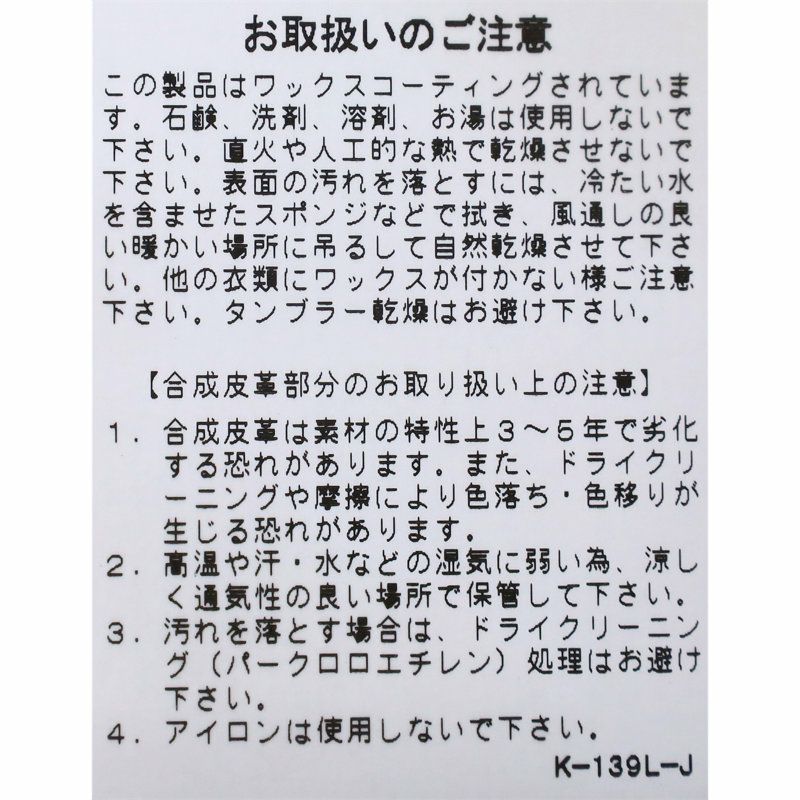 お取扱いのご注意
この製品はワックスコーティングされていま
す。石鹸、洗剤、溶剤、お湯は使用しないで
下さい。直火や人工的な熱で乾燥させないで
下さい。表面の汚れを落とすには、冷たい水
を含ませたスポンジなどで拭き、風通しの良
い暖かい場所に吊るして自然乾燥させて下さ
い。他の衣類にワックスが付かない様ご注意
下さい。タンブラー乾燥はお避け下さい。
【合成皮革部分のお取り扱い上の注意】
1. 合成皮革は素材の特性上3～5年で劣化
する恐れがあります。また、ドライクリ
ーニングや摩擦により色落ち・色移りが
生じる恐れがあります。
2. 高温や汗・水などの湿気に弱い為、涼し
く通気性の良い場所で保管して下さい。
3. 汚れを落とす場合は、ドライクリーニン
グ（パークロロエチレン）処理はお避け
下さい。
4. アイロンは使用しないで下さい。
K-139L-J